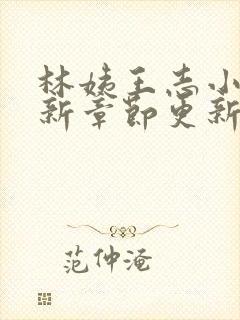 林姨王志小
新章节更新
范仲淹